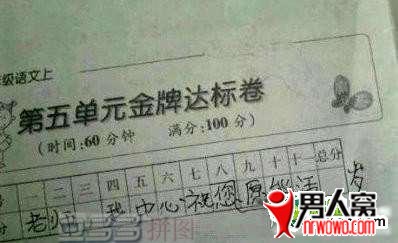 级语文上
第五单元金牌达标卷
(时间:60 分钟 满分:100 分)
二 三 四 五 六 七 八 九 十 十一 总分
老师 我中心祝您 活 岁
拼图
男人窝